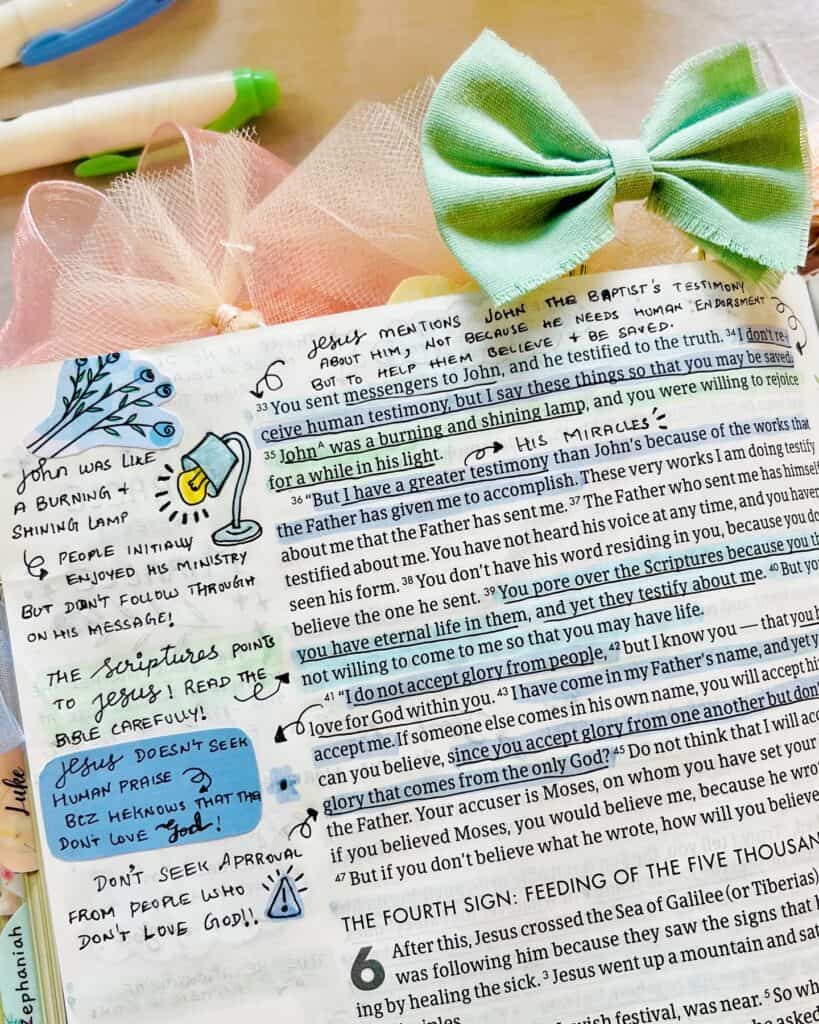 Jesus MENTIONS JOHN THE BAPTIST'S TESTIMONY
ABOUT HIM, NOT BECAUSE HE NEEDS HUMAN ENDORSMENT
BUT TO HELP THEM BELIEVE + BE SAVED.
33 You sent messengers to John, and he testified to the truth. 34 I don't re-
ceive human testimony, but I say these things so that you may be saved.
35 John^A was a burning and shining lamp, and you were willing to rejoice
for a while in his light.
HIS MIRACLES
36 "But I have a greater testimony than John's because of the works that
the Father has given me to accomplish. These very works I am doing testify
about me that the Father has sent me. 37 The Father who sent me has himself
testified about me. You have not heard his voice at any time, and you haven
seen his form. 38 You don't have his word residing in you, because you do
believe the one he sent. 39 You pore over the Scriptures because you th
you have eternal life in them, and yet they testify about me. 40 But yo
not willing to come to me so that you may have life.
41 "I do not accept glory from people, 42 but I know you — that you h
love for God within you. 43 I have come in my Father's name, and yet y
accept me. If someone else comes in his own name, you will accept hi
can you believe, since you accept glory from one another but don
glory that comes from the only God? 45 Do not think that I will acc
the Father. Your accuser is Moses, on whom you have set your
if you believed Moses, you would believe me, because he wro
47 But if you don't believe what he wrote, how will you believe
THE FOURTH SIGN: FEEDING OF THE FIVE THOUSAN
6 After this, Jesus crossed the Sea of Galilee (or Tiberias)
was following him because they saw the signs that h
ing by healing the sick. 3 Jesus went up a mountain and sat
festival, was near. 5 So wh
asked
John WAS LIKE
A BURNING +
SHINING LAMP
PEOPLE INITIALLY
ENJOYED HIS MINISTRY
BUT DON'T FOLLOW THROUGH
ON HIS MESSAGE!
THE Scriptures POINTS
TO Jesus! READ THE
BIBLE CAREFULLY!
Jesus DOESN'T SEEK
HUMAN PRAISE
BCZ HE KNOWS THAT THE
DON'T LOVE God!
DON'T SEEK APRROVAL
FROM PEOPLE WHO
DON'T LOVE GOD!!
Luke
Zephaniah